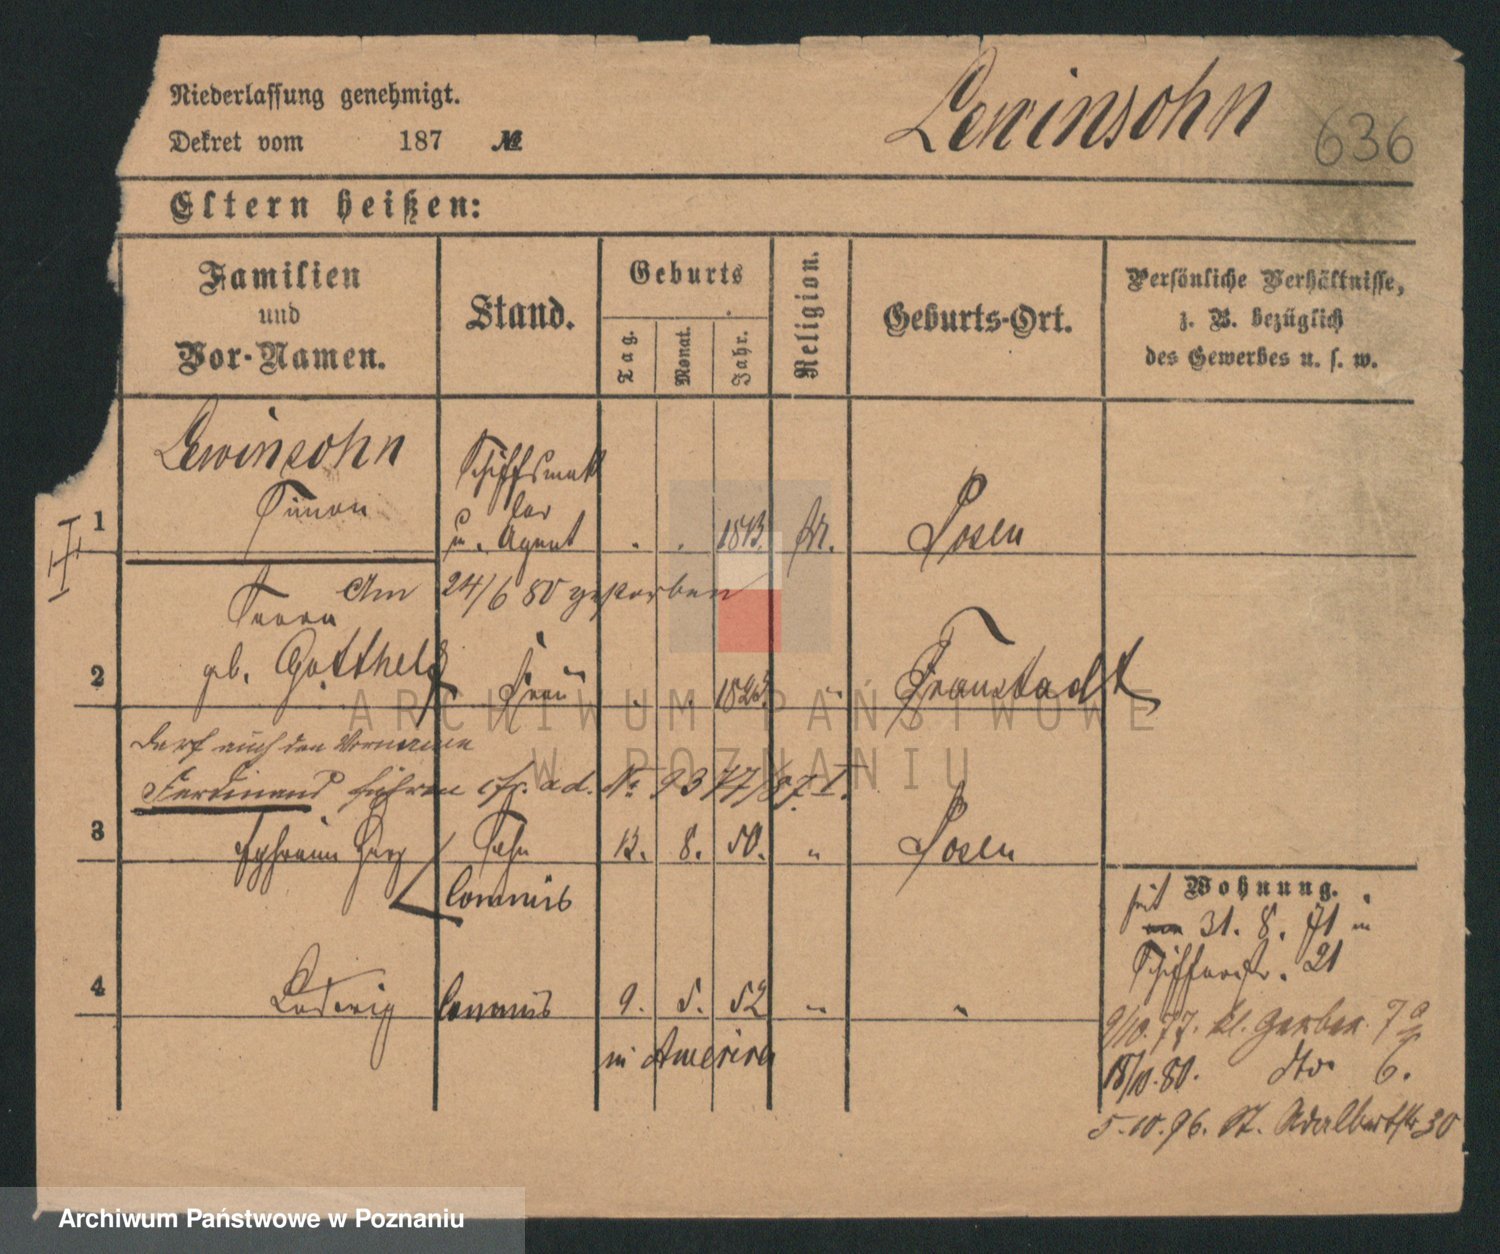 Niederlassung genehmigt.
Dekret vom 187 №
Lewinsohn
636
Eltern heißen:
Familien
und
Vor-Namen.
Stand.
Geburts
Tag.
Monat.
Jahr.
Religion.
Geburts-Ort.
Persönliche Verhältnisse,
z. B. bezüglich
des Gewerbes u. s. w.
Lewinsohn
Simon
Schiffsmak
ler
u. Agent
1
. . 1813.
Posen
Am 24/6 80 gestorben
gb. Gotthelf
2
Frau
. .
"
Fraustadt
Darf auch den Vornamen
Ferdinand führen cfr. ad. No 9377/87. I.
3
Ephraim
Sohn
13. 8. 50. "
Posen
Commis
Wohnung.
seit
31. 8. 71 in
Schifferstr. 21
4
Ludwig
Commis
9. 5. 52 "
"
in America
9/10. 77. kl. Gerber. 7a
18/10. 80. dto 6.
5.10.96. St. Adalbertstr 30
ARCHIWUM PAŃSTWOWE
W POZNANIU
Archiwum Państwowe w Poznaniu